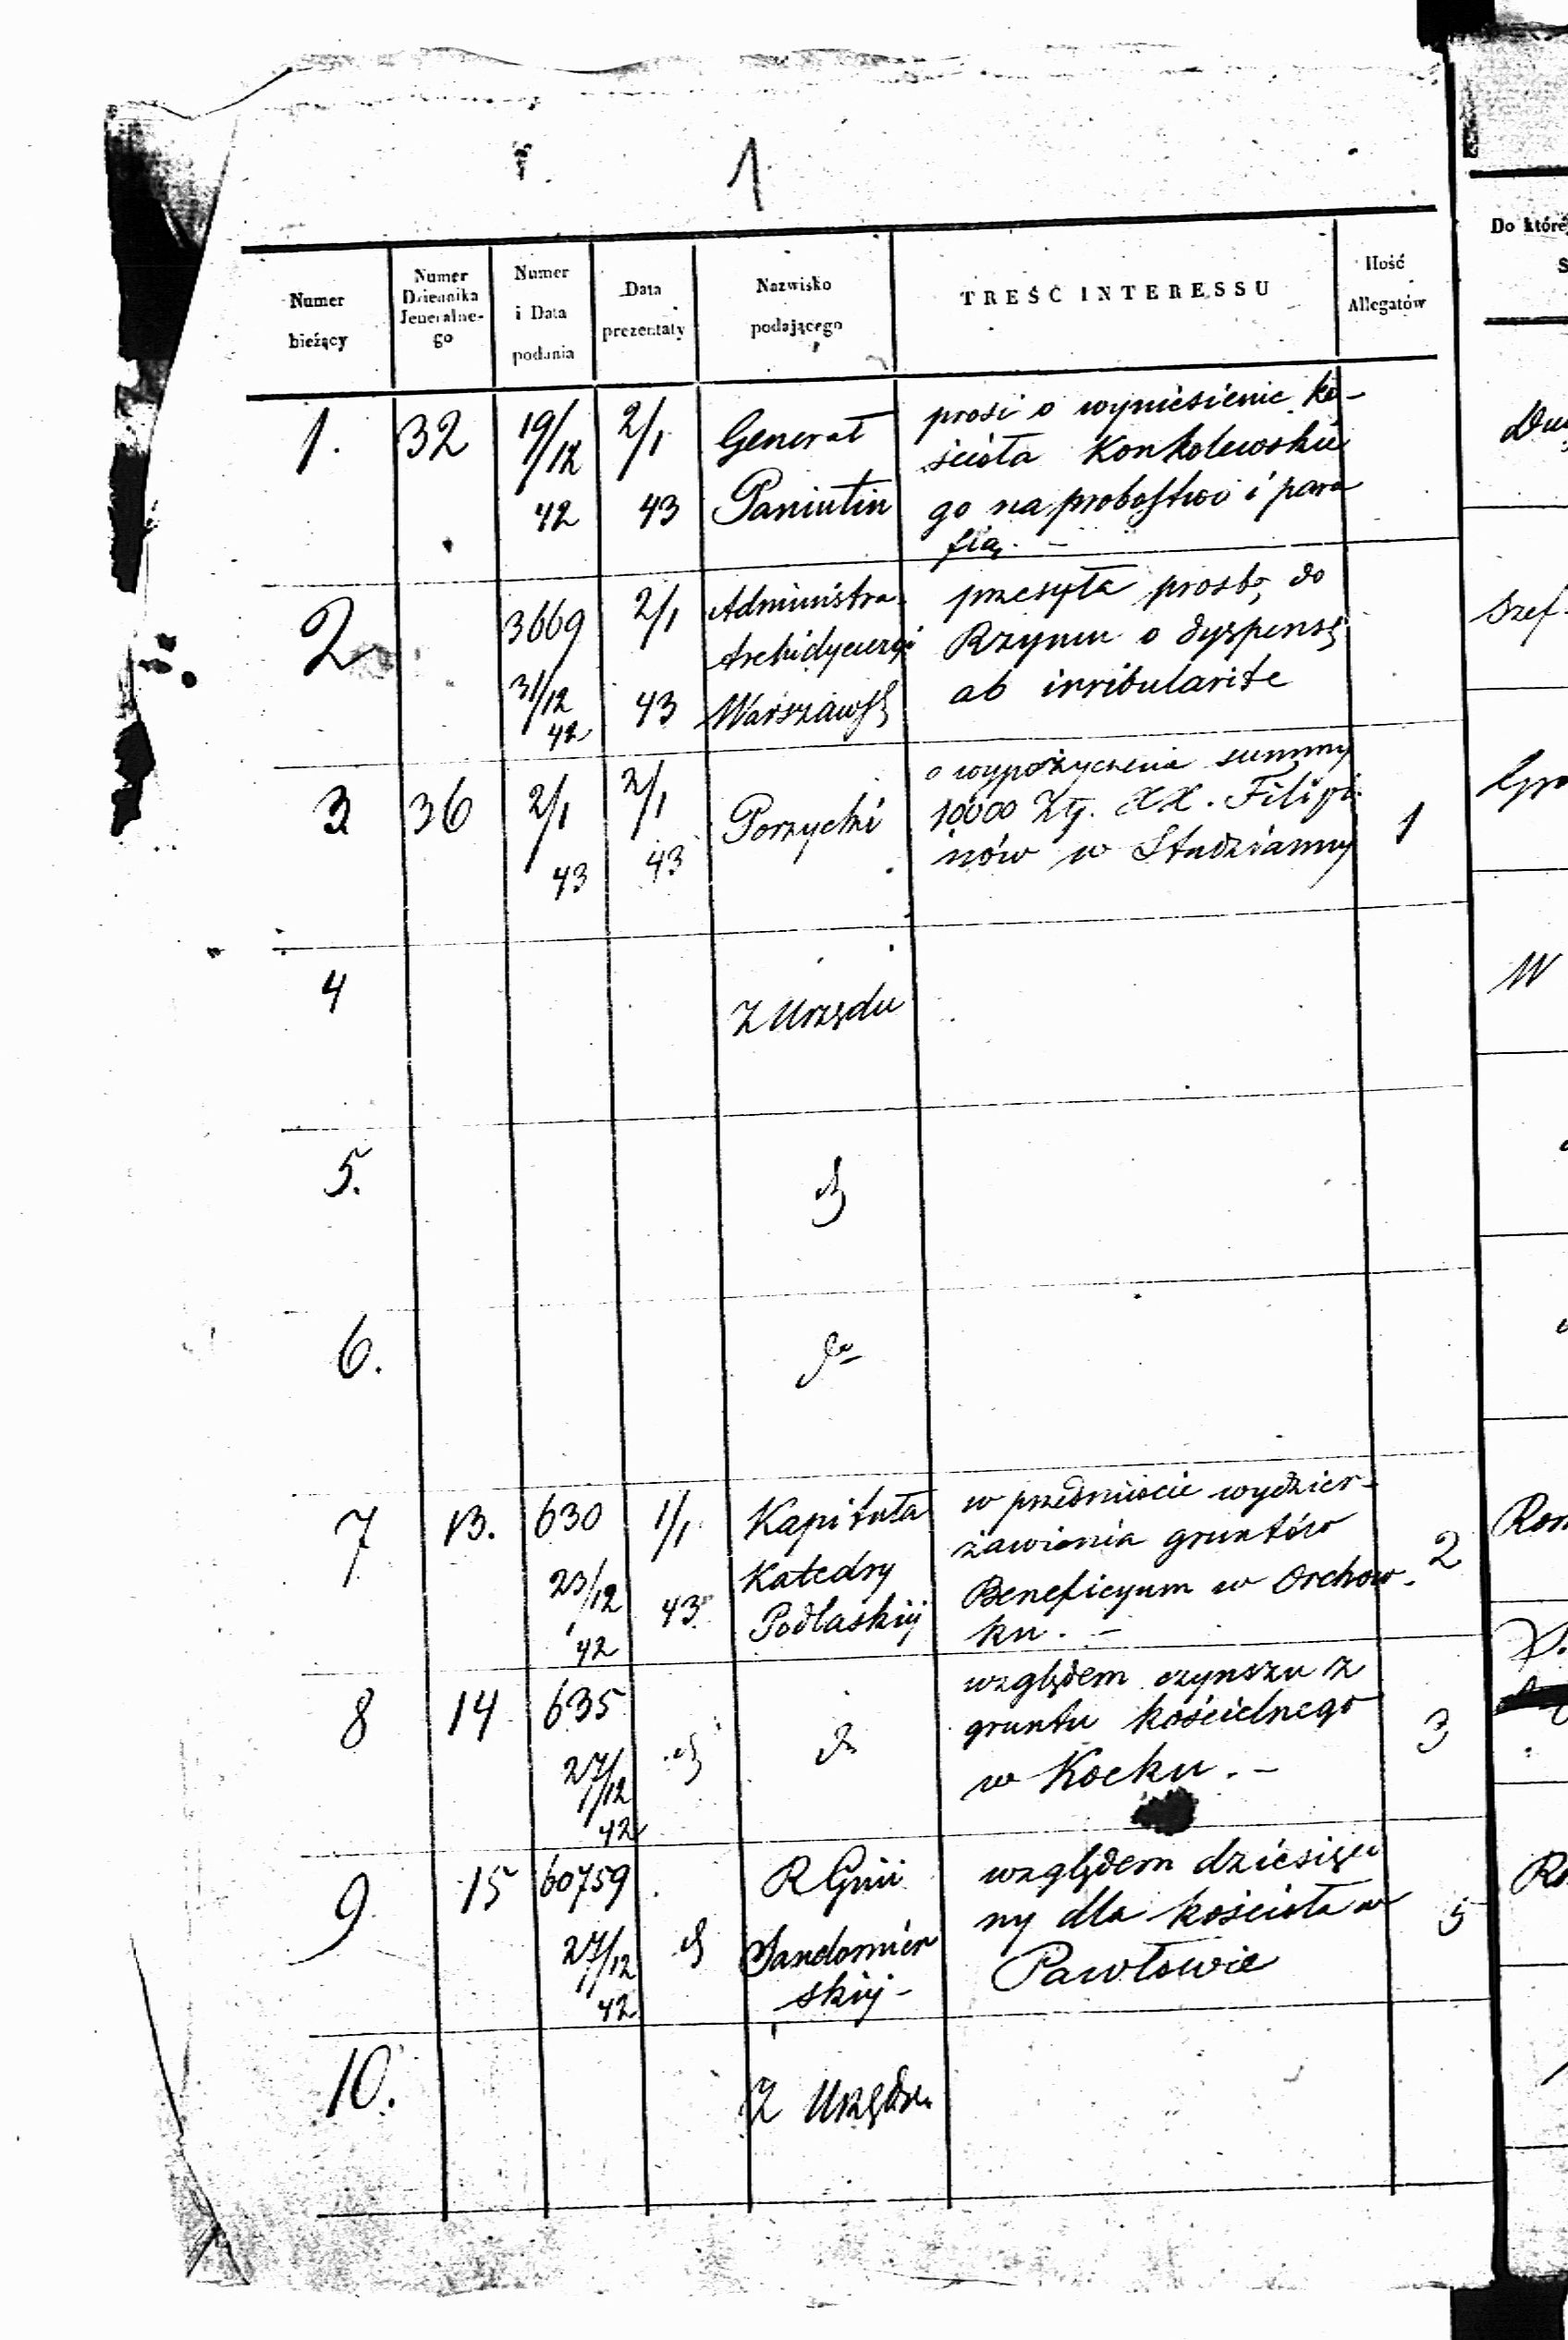 1
Numer bieżący
Numer Dziennika Jeneralnego
Numer i Data podania
Data prezentaty
Nazwisko podającego
TREŚĆ INTERESSU
Ilość Allegatów
Do któréj
1. 32 19/12 42 2/1 43
Generał
Paniutin
prosi o wyniesienie ko-
ścioła Konkolewskie
go na probostwo i para
fią. -
2 3669 31/12 42 2/1 43
Administra.
Archidyecezyi
Warszawsk
przesyła prosbę do
Rzymu o dyspensę
ab irribularite
3 36 2/1 43 2/1 43
Porzycki
o wypożyczenie summy
10000 Złp. XX. Filipi
nów w Studzianny
1
4
Z Urzędu
5.
do
6.
do
7 13. 630 23/12 42 1/1 43
Kapituła
Katedry
Podlaskiej
w przedmiocie wydzier-
żawienia gruntów
Beneficyum w Orchow-
ku. -
2
8 14 635 27/12 42 do
do
względem czynszu z
gruntu kościelnego
w Kocku. -
3
9 15 60759 27/12 42 do
R Gnii
Sandomier
skiej -
względem dziesięci
ny dla kościoła w
Pawłowie
5
10.
Z Urzędu